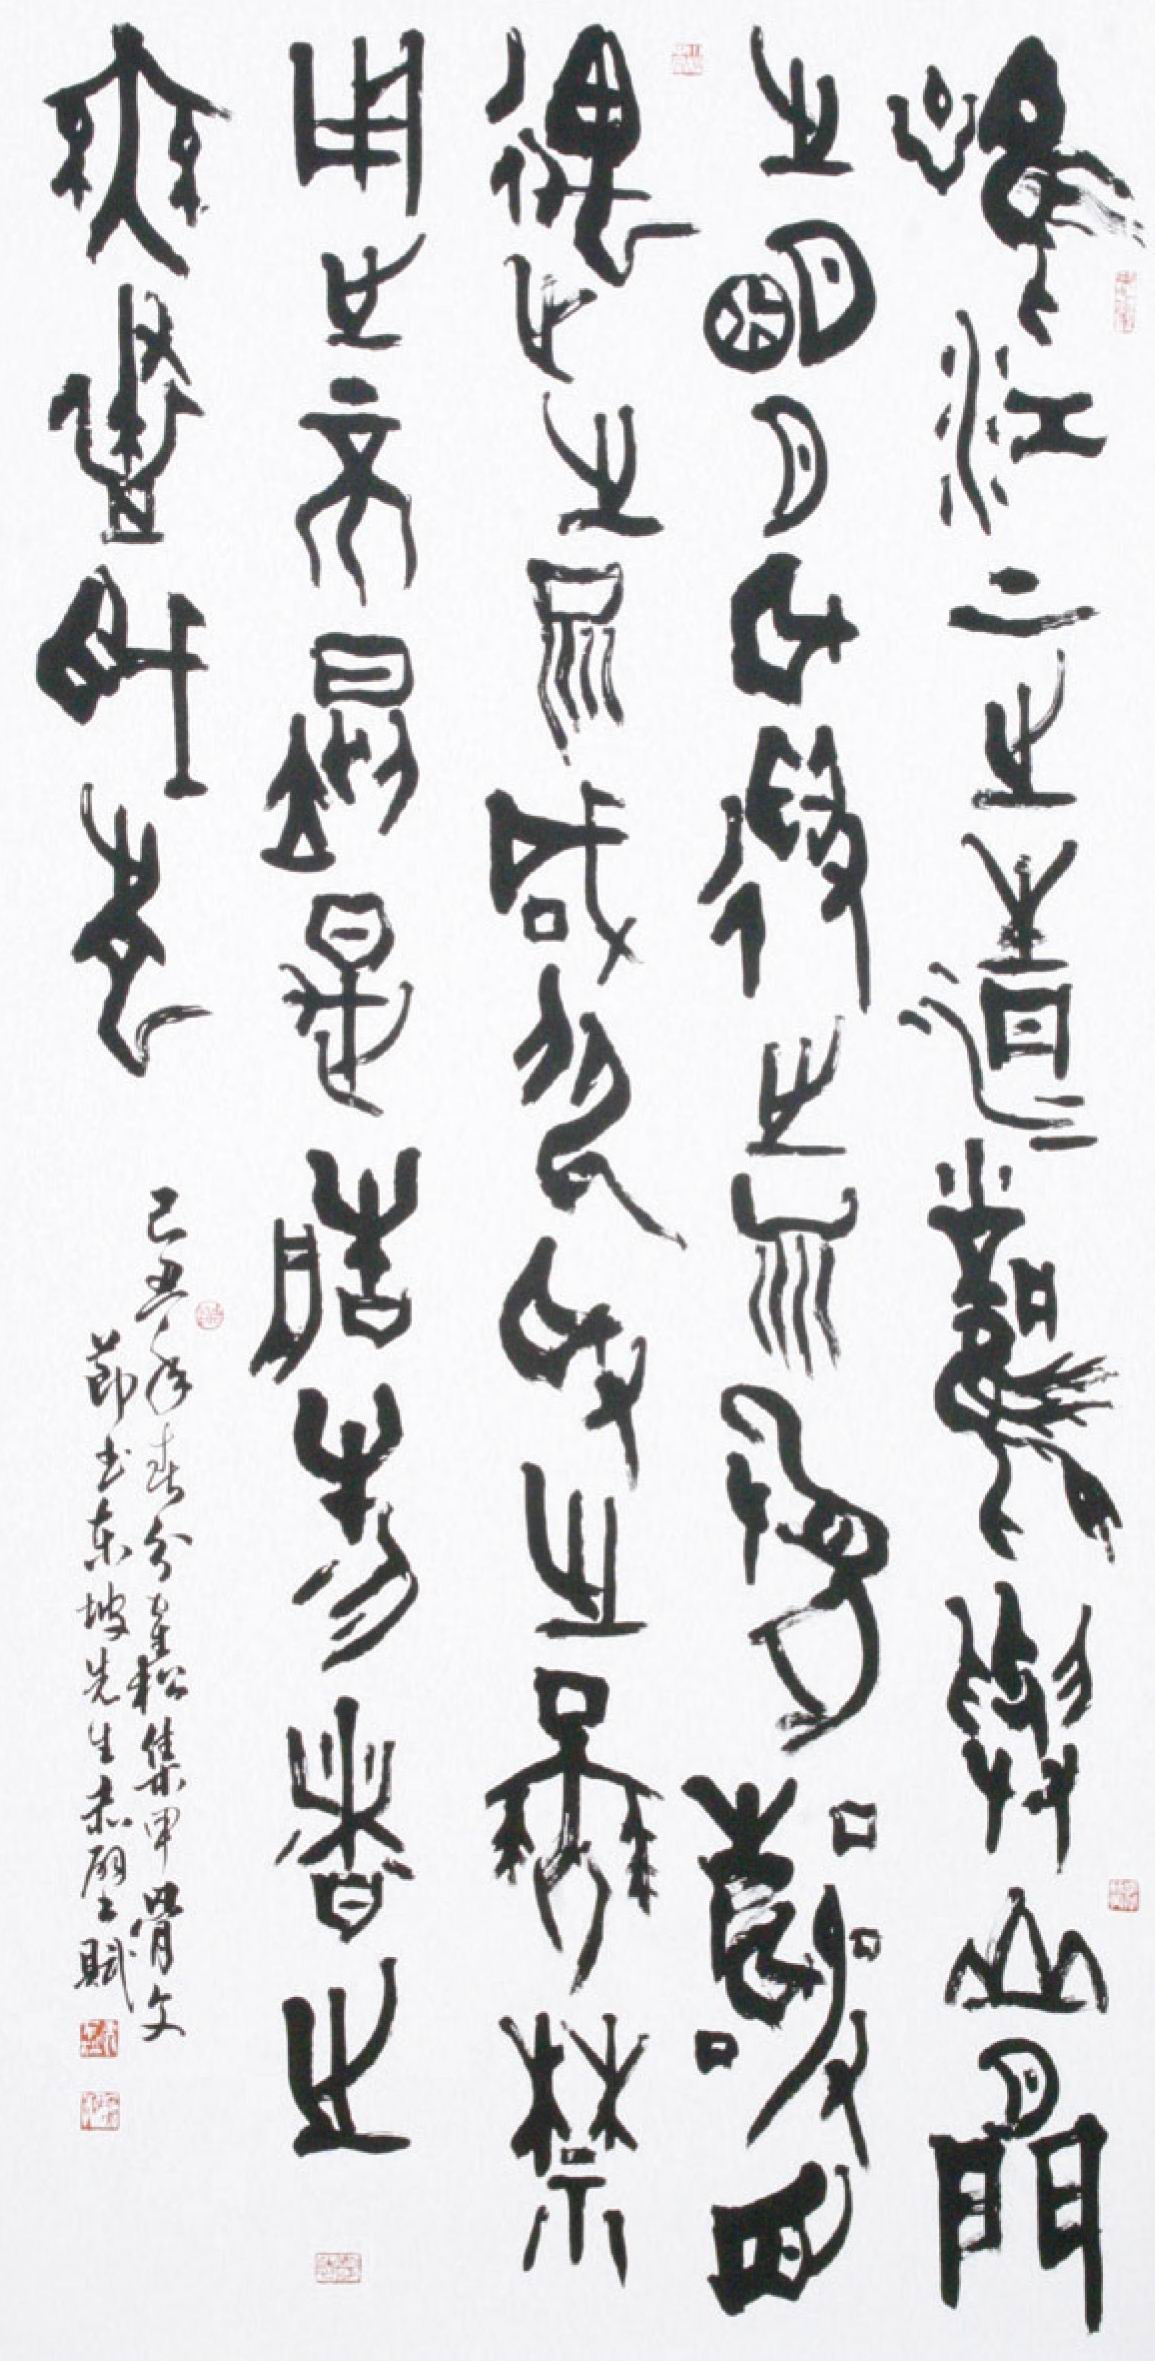 唯江上之清風與山間
之明月耳得之而為聲目
遇之而成色取之無禁
用之不竭是造物者之
無盡藏也
己丑年春分崔松集甲骨文
節书东坡先生赤壁之賦